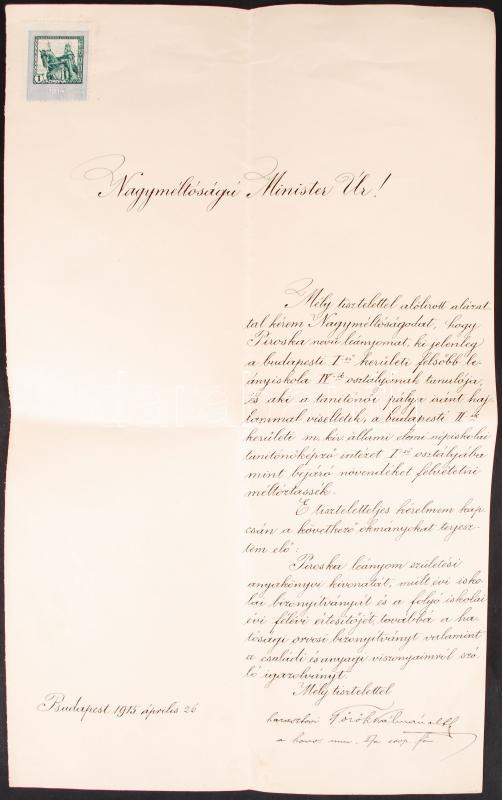 1914
Nagyméltóságú Minister Úr!
Mély tisztelettel alólirott alázat
tal kérem Nagyméltóságodat, hogy
Piroska nevü leányomat, ki jelenleg
a budapesti I-ső kerületi felsőbb le
ányiskola IV-ik osztályának tanulója,
és aki a tanitónői pálya iránt haj
lammal viseltetik, a budapesti II-ik
kerületi m. kir. állami elemi népiskolai
tanitónőképző intézet I-ső osztályába
mint bejáró növendéket felvétetni
méltóztassék.
E tiszteletteljes kérelmem kap
csán a következő okmányokat terjesz
tem elő:
Piroska leányom születési
anyakönyvi kivonatát, mult évi isko
lai bizonyitványát és a folyó iskolai
évi félévi értesitőjét, továbbá a ha
tósági orvosi bizonyitványt valamint
a családi és anyagi viszonyaimról szó
ló igazolványt.
Mély tisztelettel
Budapest 1915 április 26
haraszthy Török Kálmán
a honv. min.